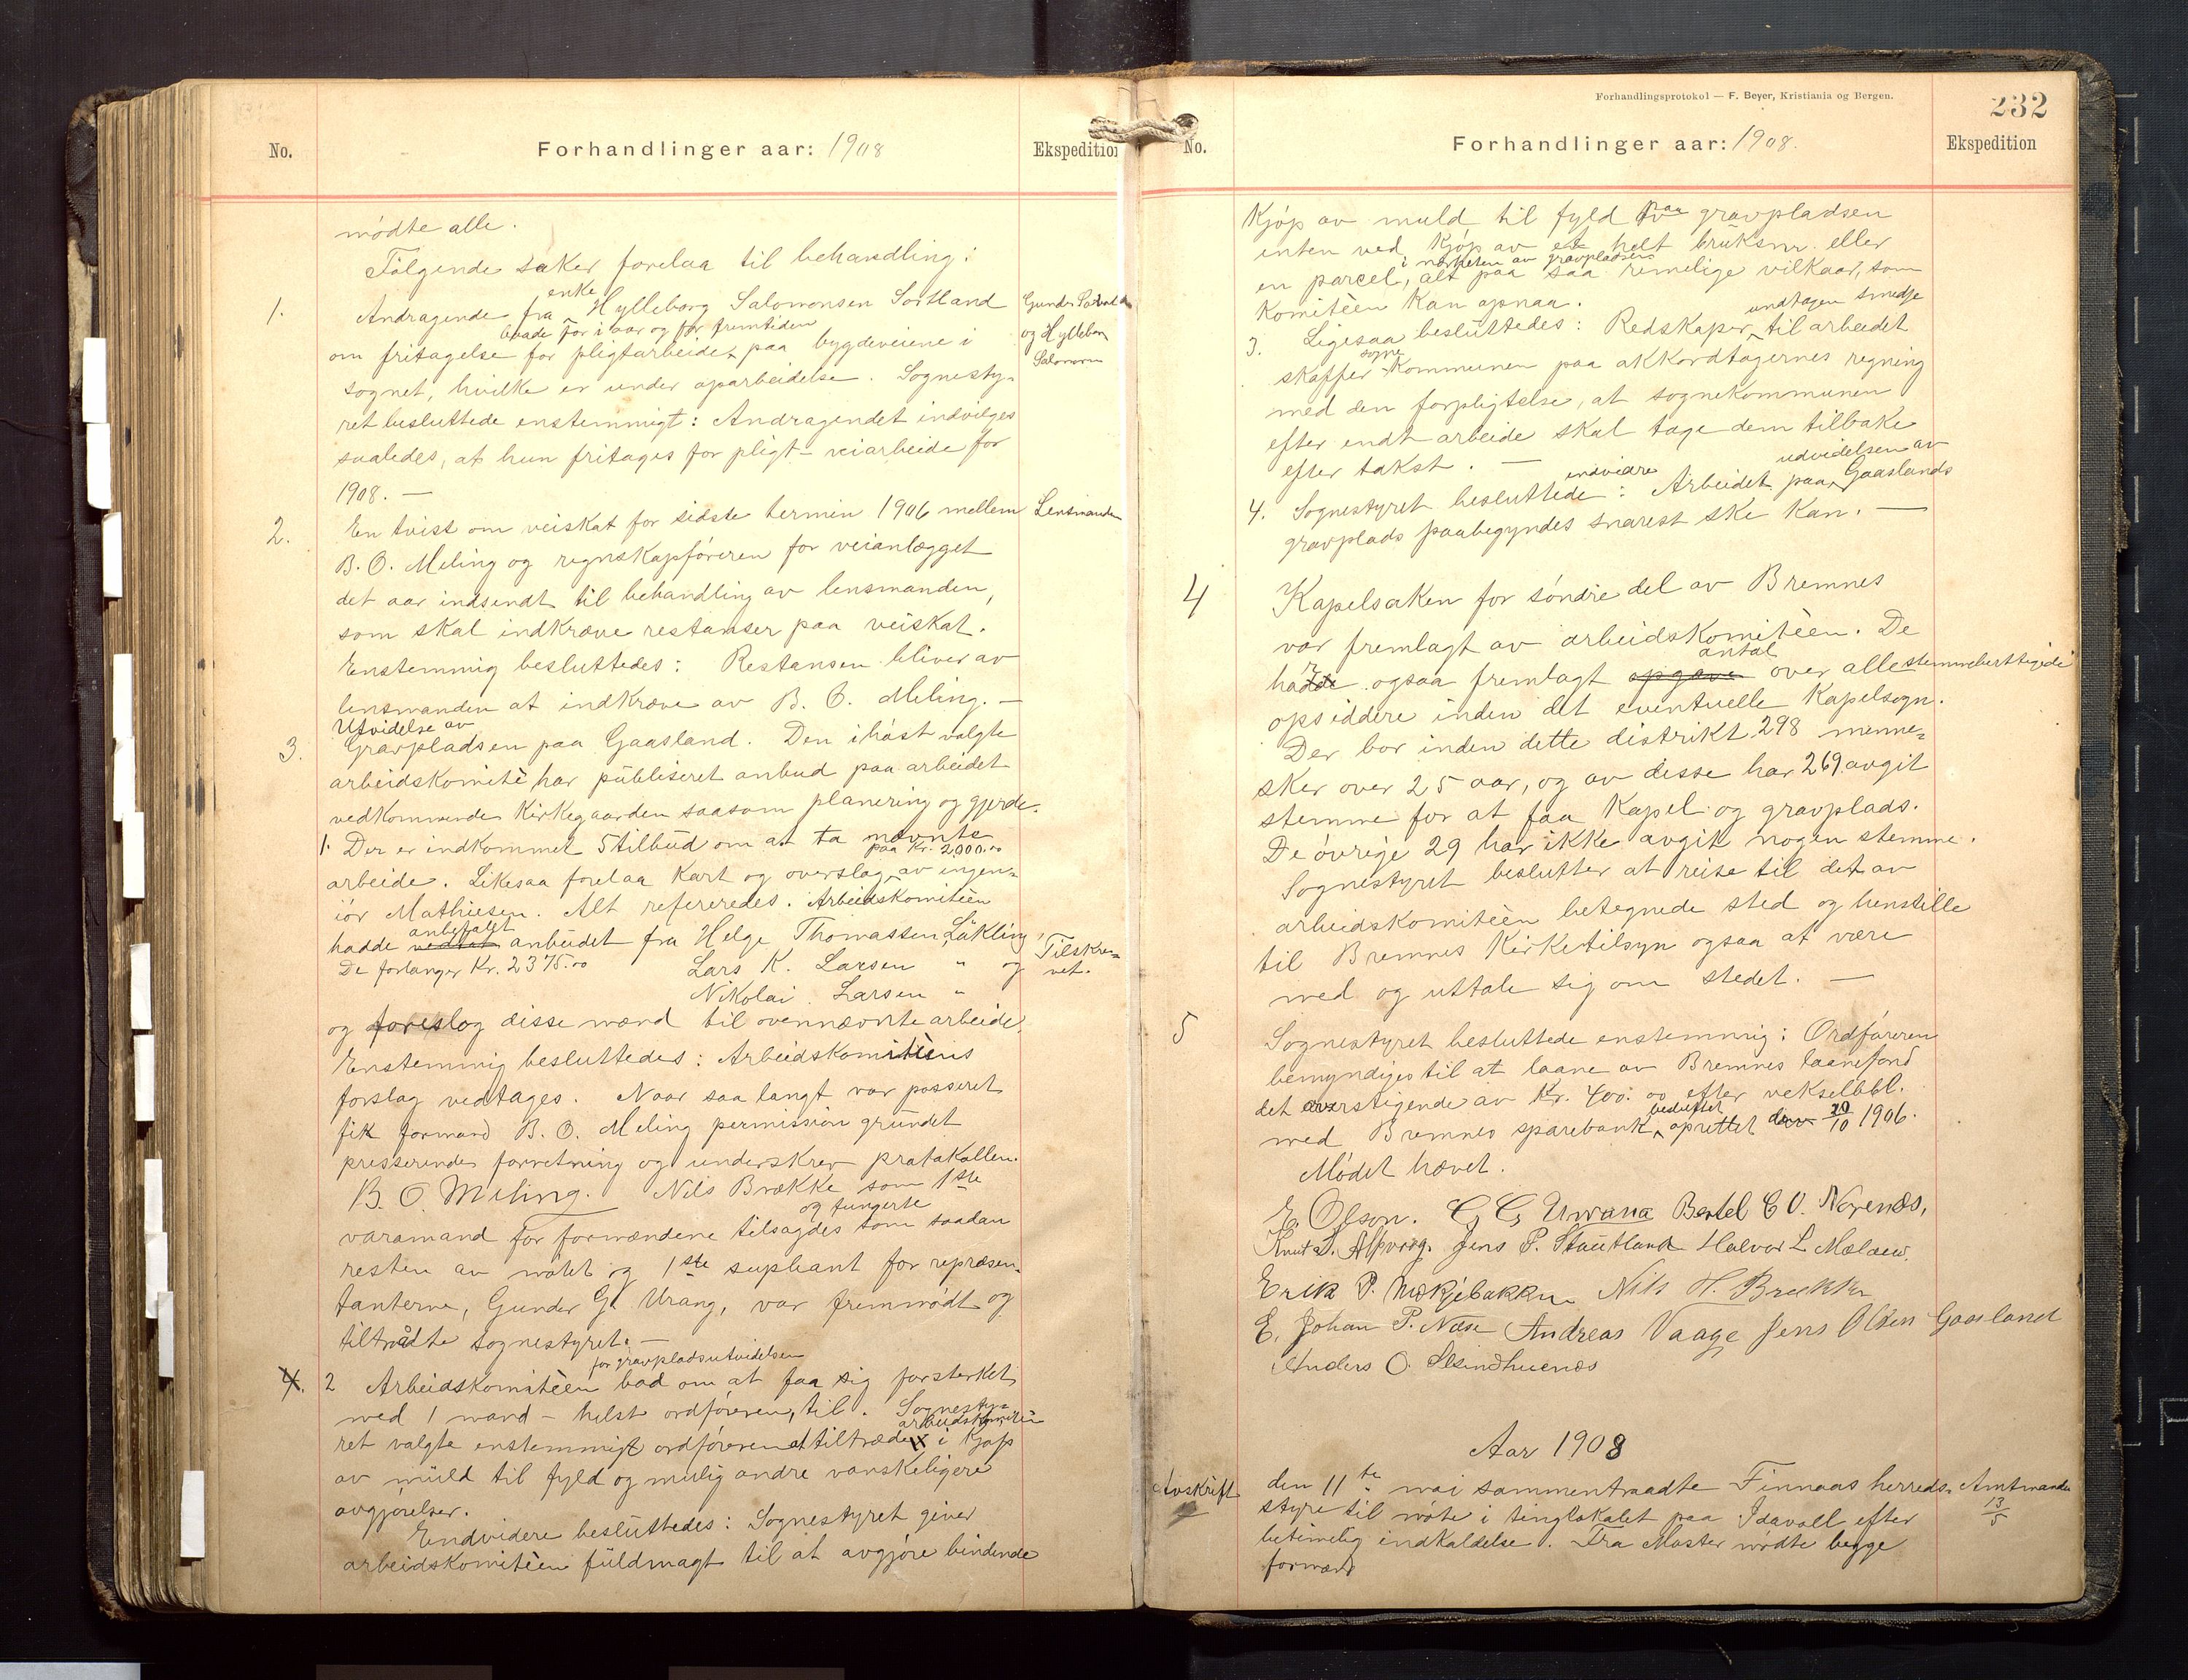 No.
Forhandlinger aar: 1908
Ekspedition
mødte alle.
Følgende saker forelaa til behandling:
1.
Andragende fra enke Hylleborg Salomonsen Sortland
om fritagelse for pligtarbeide baade for i aar og for fremtiden paa bygdeveiene i
sognet, hvilke er under oparbeidelse. Sognesty-
ret besluttede enstemmigt: Andragendet indvilges
saaledes, at hun fritages for pligt-veiarbeide for
1908. —
og Hylleborg
2.
En tvist om veiskat for sidste termin 1906 mellem
Lensmanden
B. O. Meling og regnskapføreren for veianlægget
det aar indsendt til behandling av lensmanden,
som skal indkræve restanser paa veiskat.
Enstemmig besluttedes: Restansen bliver av
lensmanden at indkræve av B. O. Meling. —
3.
Utvidelse av
Gravpladsen paa Gaasland. Den i høst valgte
arbeidskomitè har publiseret anbud paa arbeidet
vedkommende Kirkegaarden saasom planering og gjerde.
1. Der er indkommet 5 tilbud om at ta nævnte
arbeide. Likesaa forelaa Kart og overslag paa Kr. 2000.00 av ingen-
iør Mathiesen. Alt refereredes. Arbeidskomitèen
hadde vedtat anbefalet anbudet fra Helge Thomassen Løkling,
De forlanger Kr. 2375.00 Lars K. Larsen " og
Nikolai Larsen "
Tilskre-
vet.
og foreslog disse mænd til ovennævnte arbeide.
Enstemmig besluttedes: Arbeidskomitèens
forslag vedtages. Naar saa langt var passeret
fik formand B. O. Meling permission grundet
presserende forretning og underskrev protokollen.
B. O. Meling. Nils Brække som 1ste
varamand for formændene tilsagdes og fungerte som saadan
resten av møtet og 1ste supleant for repræsen-
tanterne, Gunder G. Urang, var fremmødt og
tiltraadte sognestyret. —
4. 2 Arbeidskomitèen for gravpladsutvidelsen bad om at faa sig forsterket
med 1 mand – helst ordføreren, til. Sognesty-
ret valgte enstemmigt ordføreren at tiltræde arbeidskomitèen i Kjøp
av muld til fyld og mulig andre vanskeligere
avgjørelser.
Endvidere besluttedes: Sognestyret giver
arbeidskomitèen fuldmagt til at avgjøre bindende
Forhandlingsprotokol — F. Beyer, Kristiania og Bergen.
232
No.
Forhandlinger aar: 1908.
Ekspedition
Kjøp av muld til fyld paa gravpladsen
enten ved Kjøp av et helt bruksnr. eller
en parcel, i nærheten av gravpladsen alt paa saa rimelige vilkaar, som
Komitèen Kan opnaa.
3. Ligesaa besluttedes: Redskaper, undtagen smedje til arbeidet
skaffer sogneKommunen paa akkordtagernes regning
med den forpligtelse, at sognekommunen
efter endt arbeide skal tage dem tilbake
efter takst. —
4. Sognestyret besluttede endvidre: Arbeidet paa udvidelsen av Gaaslands
gravplads paabegyndes snarest ske Kan. —
4
Kapelsaken for søndre del av Bremnes
var fremlagt av arbeidskomitèen. De
hadde ogsaa fremlagt opgave antal over alle stemmeberttigede
opsiddere inden det eventuelle Kapelsogn.
Der bor inden dette distrikt 298 menne-
sker over 25 aar, og av disse har 269 avgit
stemme for at faa Kapel og gravplads.
De øvrige 29 har ikke avgit nogen stemme.
Sognestyret beslutter at reise til det av
arbeidskomitèen betegnede sted og henstille
til Bremnes Kirketilsyn ogsaa at være
med og uttale sig om stedet. —
5
Sognestyret besluttede enstemmig: Ordføreren
bemyndiges til at laane av Bremnes laanefond
det overstigende av Kr. 400.00 efter vekselobl.
med Bremnes sparebank besluttet oprettet den 20/10 1906.
Mødet hævet.
E. Olson. G G Urvana Bertel E V. Norenæs,
Knut S. Alpvaag. Jens P. Stautland Halvor L. Mælaew
Erik P. Nekjebakken Nils H. Brekke
E. Johan P. Næse Andreas Vaage Jens Olsen Gaasland
Anders O.
Aar 1908
Avskrift
den 11te mai sammentraadte Finnaas herreds-
Amtmanden
13/5
styre til møte i tinglokalet paa Idavoll efter
betimelig indkaldelse. Fra Moster mødte begge
formænd